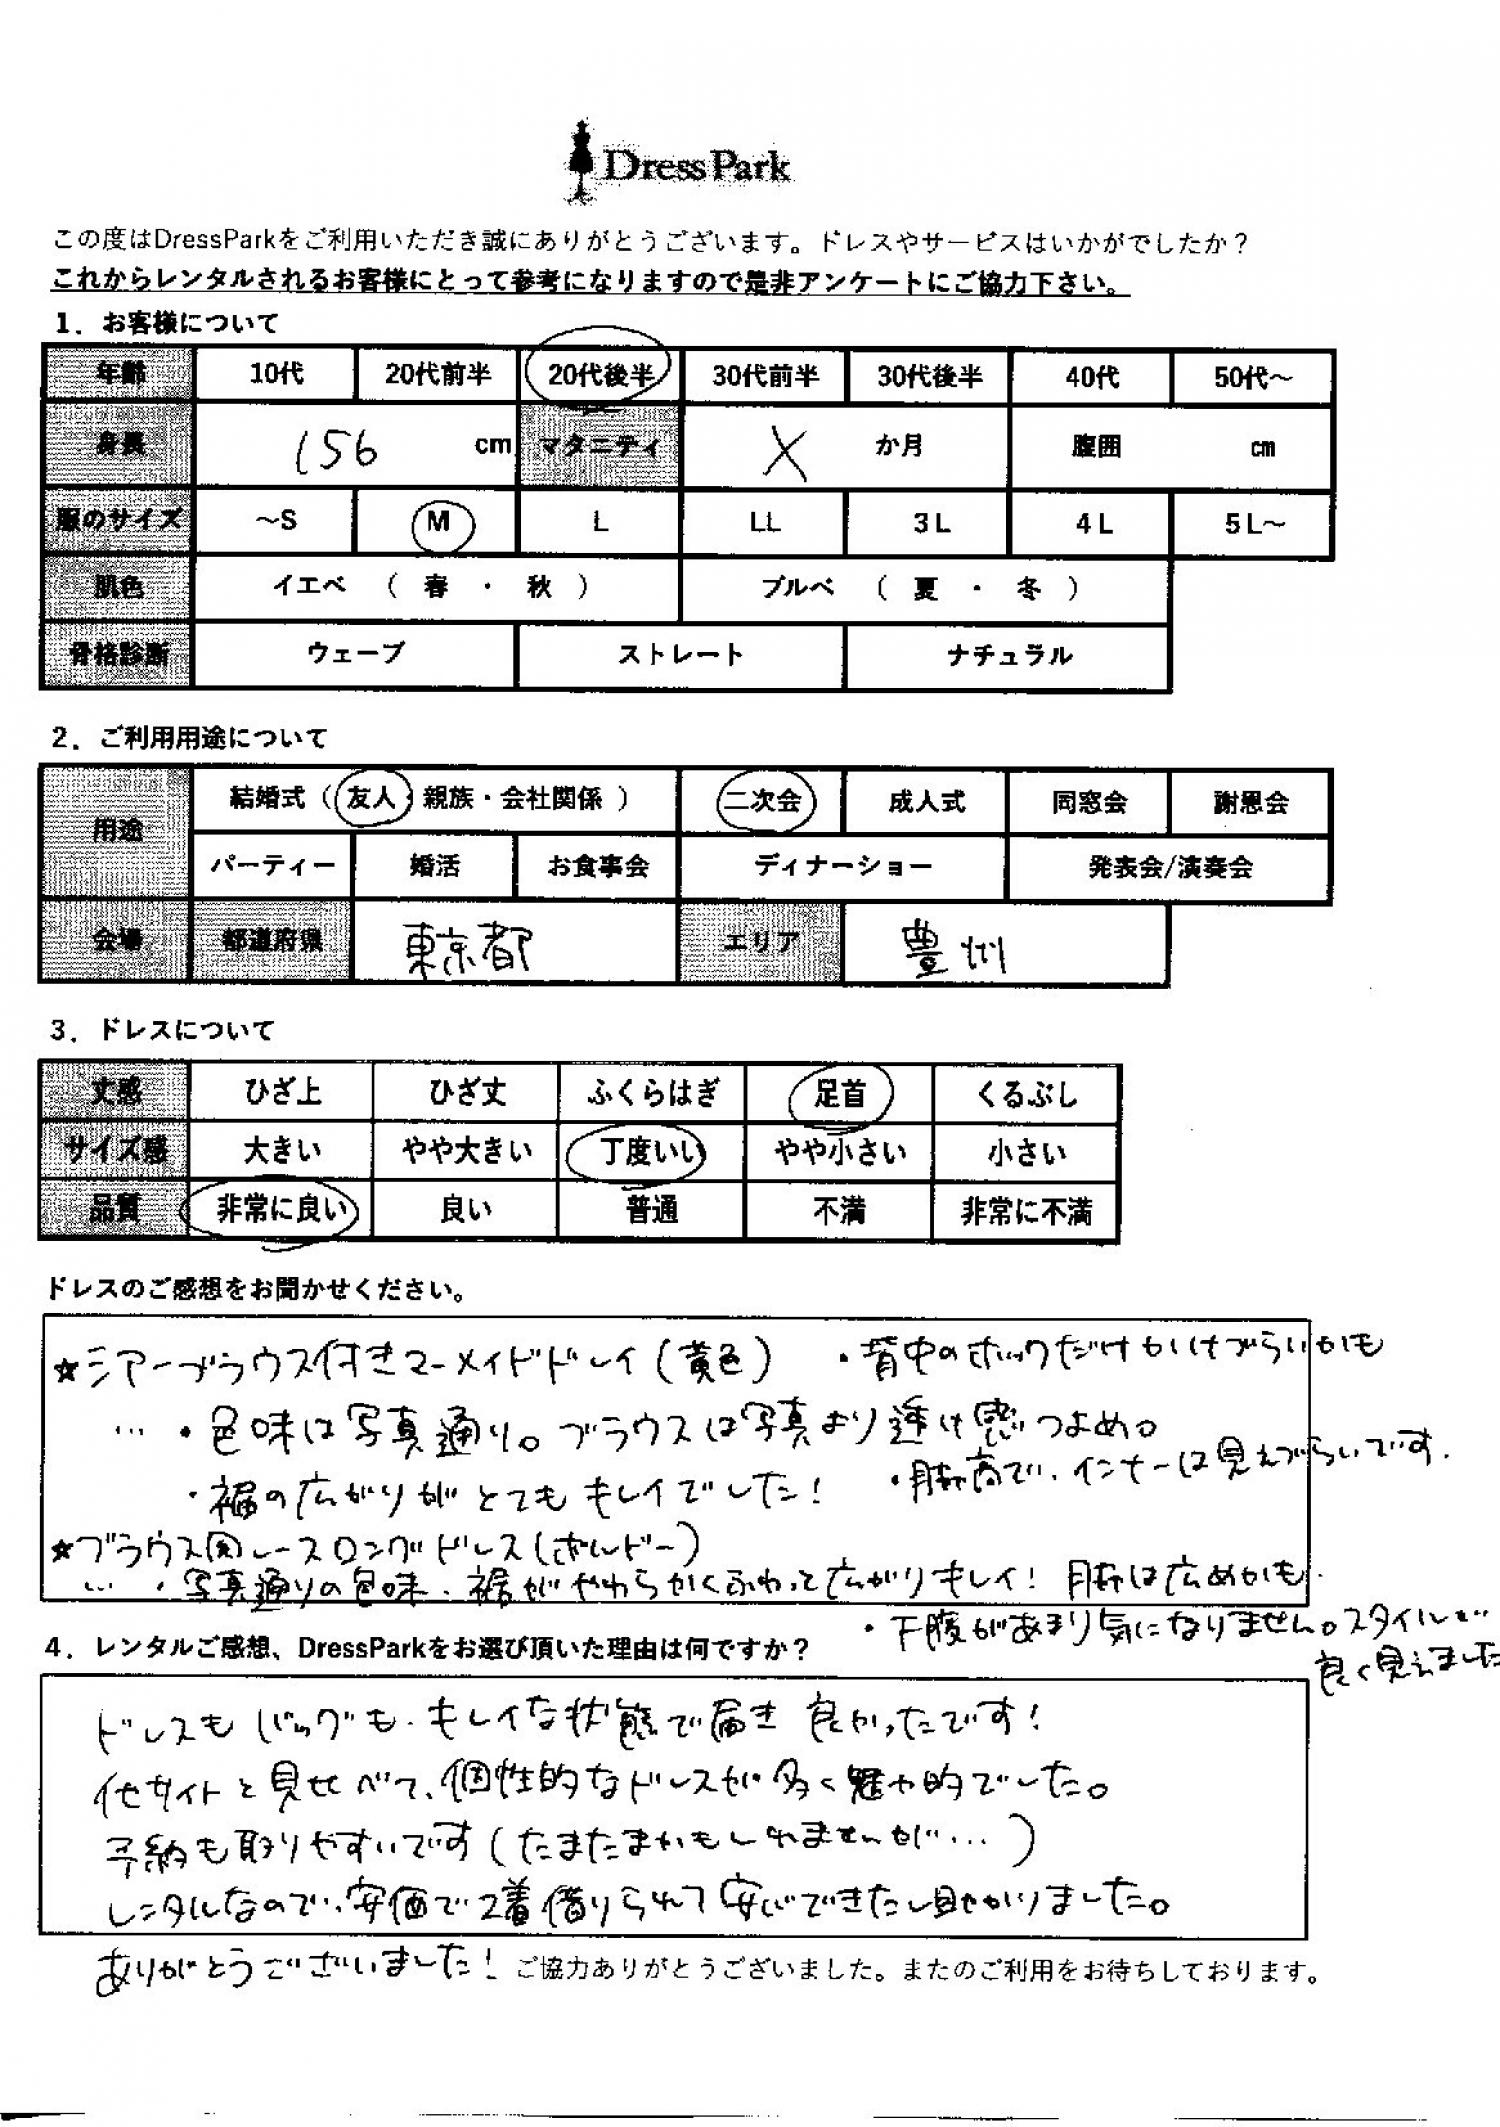 DressPark
この度はDressParkをご利用いただき誠にありがとうございます。ドレスやサービスはいかがでしたか？
これからレンタルされるお客様にとって参考になりますので是非アンケートにご協力下さい。
1．お客様について
年齢 10代 20代前半 20代後半 30代前半 30代後半 40代 50代～
身長 156 cm マタニティ × か月 腹囲 cm
服のサイズ ～S M L LL 3L 4L 5L～
肌色 イエベ （ 春 ・ 秋 ） ブルベ （ 夏 ・ 冬 ）
骨格診断 ウェーブ ストレート ナチュラル
2．ご利用用途について
用途 結婚式（ 友人・親族・会社関係 ） 二次会 成人式 同窓会 謝恩会
パーティー 婚活 お食事会 ディナーショー 発表会/演奏会
会場 都道府県 東京都 エリア 豊州
3．ドレスについて
丈感 ひざ上 ひざ丈 ふくらはぎ 足首 くるぶし
サイズ感 大きい やや大きい 丁度いい やや小さい 小さい
品質 非常に良い 良い 普通 不満 非常に不満
ドレスのご感想をお聞かせください。
☆シアーブラウス付きマーメイドドレイ(黄色) ・背中のホックだけかけづらいかも
… ・色味は写真通り。ブラウスは写真より透け感つよめ。
・裾の広がりがとてもキレイでした! ・胸高で、インナーは見えづらいです.
☆ブラウス風レースロングドレス(ボルドー)
… ・写真通りの色味・裾がやわらかくふわって広がりキレイ! 胸は広めかも.
・下腹があまり気になりません。スタイルが
良く見えました
4．レンタルご感想、DressParkをお選び頂いた理由は何ですか？
ドレスもバッグも、キレイな状態で届き良かったです!
他サイトと見せべて、個性的なドレスが多く魅力的でした。
予約も取りやすいです(たまたまかもしれませんが…)
レンタルなので、安価で2着借りられて安心できたし助かりました。
ありがとうございました!
ご協力ありがとうございました。またのご利用をお待ちしております。